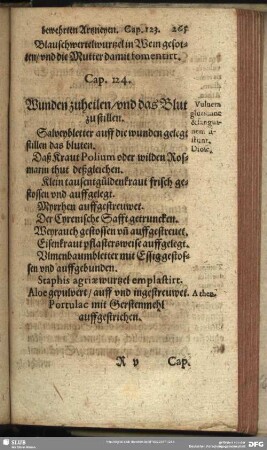 bewehrten Artzneyen. Cap. 123. 265
Blauschwertelwurtzel in Wein gesot-
ten/vnd die Mutter damit fomentirt.
Cap. 124.
Wunden zuheilen/vnd das Blut
zu stillen.
Salveybletter auff die wunden gelegt
stillen das bluten.
Daß Kraut Polium oder wilden Ros-
mann thut deßgleichen.
Klein tausentgüldenkraut frisch ge-
stossen vnd auffgelegt.
Myrrhen auffgestrewet.
Der Cyrenische Safft getruncken.
Weyrauch gestossen vñ auffgestrewet.
Eisenkraut pflastersweise auffgelegt.
Vlmenbaumbletter mit Essig gestos-
sen vnd auffgebunden.
Staphis agriæ wurtzel emplastirt.
Aloe gepulvert/ auff vnd ingestrewet.
Portulac mit Gerstenmehl
auffgestrichen.
Vulnera
glutinant
&sangui-
nem
Diosc.
Athen.
R v Cap.
SLUB
DFG